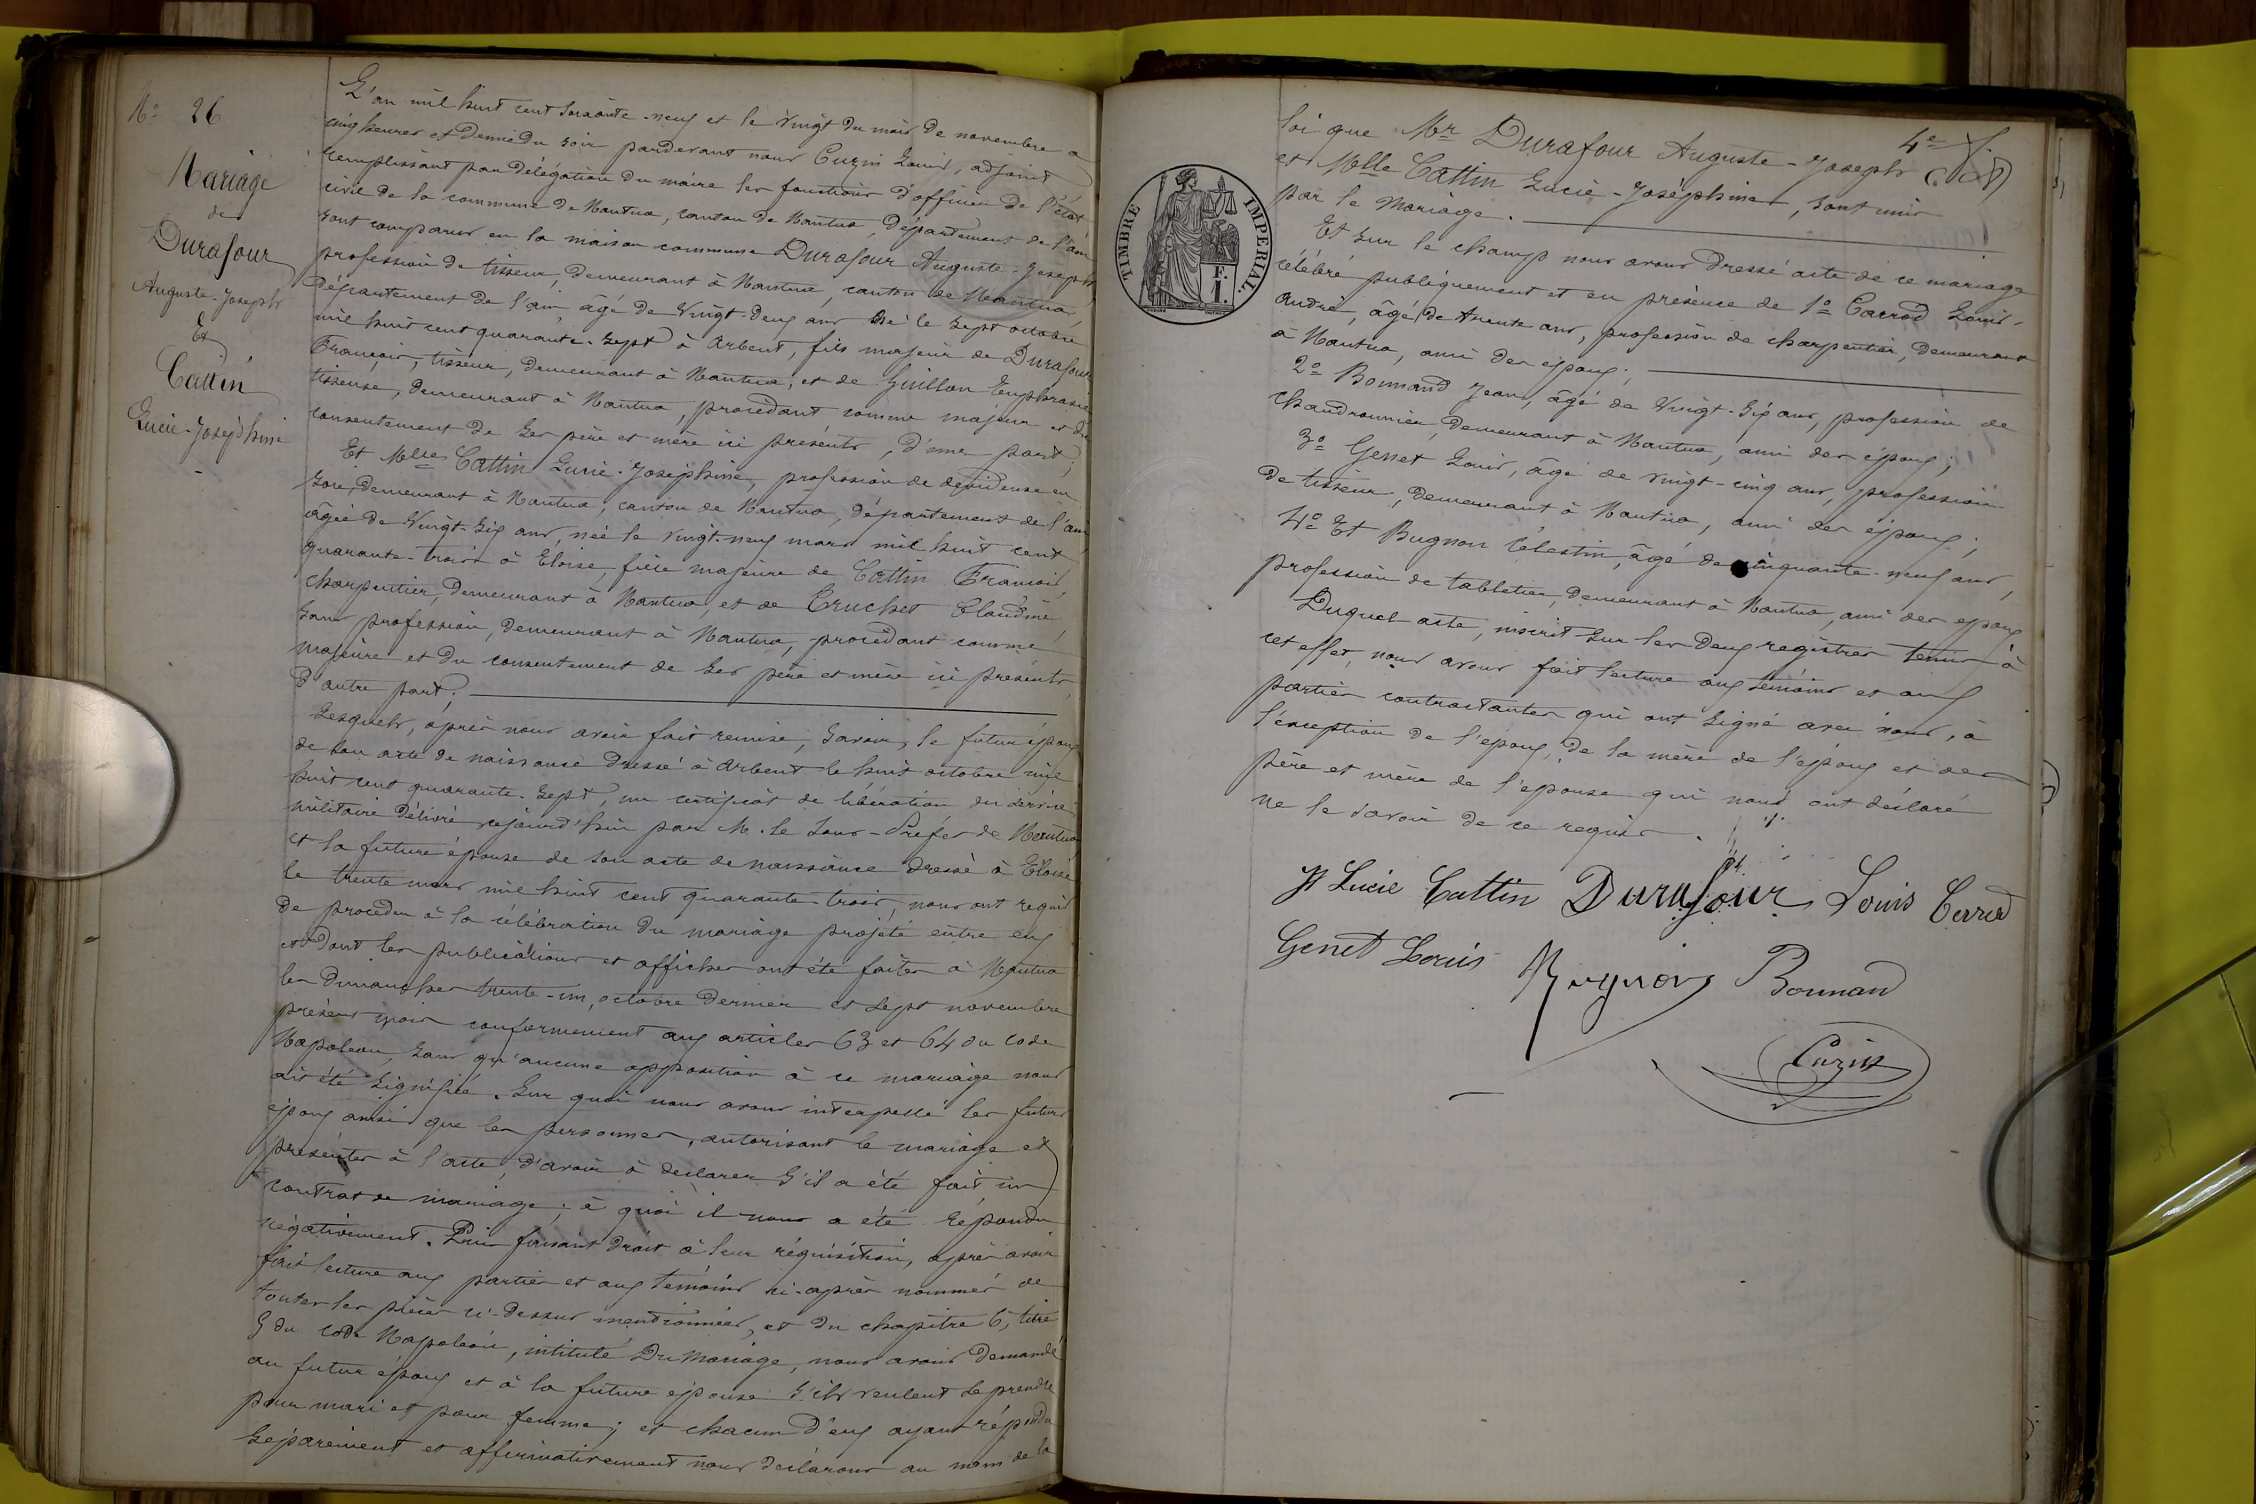 N° 26
Mariage
de
Durafour
Auguste-Joseph
Et
Cattin
Lucie-Joséphine
L'an mil huit cent soixante-neuf et le vingt du mois de novembre à
cinq heures et demie du soir pardevant nous Cuzin Louis, adjoint
remplissant par délégation du maire les fonctions d'officier de l'état
civil de la commune de Nantua, canton de Nantua, département de l'ain
sont comparus en la maison commune Durafour Auguste-Joseph,
profession de tisseur, demeurant à Nantua, canton de Nantua,
département de l'ain, âgé de vingt-deux ans né le sept octobre
mil huit cent quarante-sept à Arbent, fils majeur de Durafour
François, tisseur, demeurant à Nantua, et de Guillon Euphrasie
tisseuse, demeurant à Nantua, procédant comme majeur et du
consentement de ses père et mère ici présents, d'une part;
Et Melle Cattin Lucie-Joséphine, profession de dévideuse en
soie, demeurant à Nantua, canton de Nantua, département de l'ain,
âgée de vingt-six ans, née le vingt-neuf mars mil huit cent
quarante-trois à Eloise, fille majeure de Cattin François,
charpentier, demeurant à Nantua, et de Truchet Claudine,
sans profession, demeurant à Nantua, procédant comme
majeure et du consentement de ses père et mère ici présents,
d'autre part;
Lesquels, après nous avoir fait remise, savoir, le futur époux
de son acte de naissance dressé à Arbent le huit octobre mil
huit cent quarante-sept, un certificat de libération du service
militaire délivré cejourd'hui par M. le Sous-Préfet de Nantua
et la future épouse de son acte de naissance dressé à Eloise
le trente mars mil huit cent quarante-trois, nous ont requis
de procéder à la célébration du mariage projeté entre eux
et dont les publications et affiches ont été faites à Nantua
les dimanches trente-un, octobre dernier et sept novembre
présent mois conformement aux articles 63 et 64 du code
Napoléon, sans qu'aucune opposition à ce mariage nous
ait été signifiée. Sur quoi nous avons interpellé les futurs
époux ainsi que les personnes, autorisant le mariage et
présentes à l'acte, d'avoir à déclarer s'il a été fait un
contrat de mariage; à quoi il nous a été répondu
négativement. Puis faisant droit à leur réquisition, après avoir
fait lecture aux parties et aux témoins ci-après nommés de
toutes les pièces ci-dessus mentionnées, et du chapitre 6, titre
5 du code Napoléon, intitulé Du Mariage, nous avons demandé
au futur époux et à la future épouse s'ils veulent se prendre
pour mari et pour femme; et chacun d'eux ayant répondu
séparement et affirmativement nous déclarons au nom de la
4e f.
loi que Mr Durafour Auguste-Joseph
et Melle Cattin Lucie-Joséphine, sont unis
par le mariage.
Et sur le champ nous avons dressé acte de ce mariage
célébré publiquement et en présence de 1° Carrod Louis-
André, âgé de trente ans, profession de charpentier, demeurant
à Nantua, ami des époux;
2° Bonnand Jean, âgé de vingt-six ans, profession de
chaudronnier, demeurant à Nantua, ami des époux;
3° Genet Louis, âgé de vingt-cinq ans, profession
de tisseur, demeurant à Nantua, ami des époux;
4° Et Bugnon Célestin, âgé de cinquante-neuf ans,
profession de tabletier, demeurant à Nantua, ami des époux
Duquel acte, inscrit sur les deux registres tenus à
cet effet, nous avons fait lecture aux témoins et aux
parties contractantes qui ont signé avec nous, à
l'exception de l'époux, de la mère de l'époux et des
père et mère de l'épouse qui nous ont déclaré
ne le savoir de ce requis.
Lucie Cattin Durafour Louis Carrod
Genet Louis Bugnon Bonnand
Cuzin
TIMBRE IMPERIAL.
F.
1.